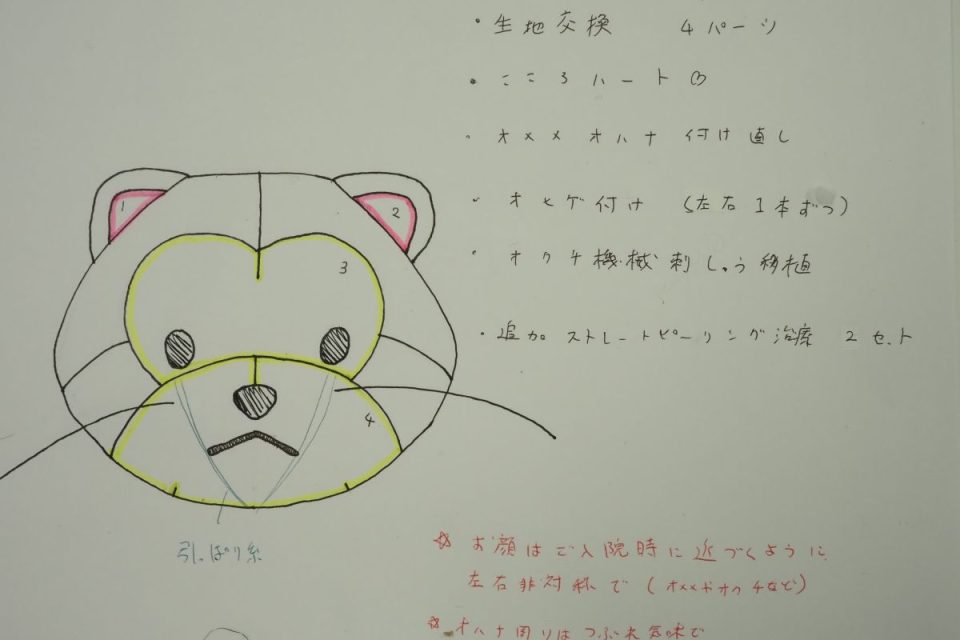 ・生地交換　4パーツ
・こころハート♡
・オメメ オハナ 付け直し
・オヒゲ付け（左右1本ずつ）
・オクチ機械刺しゅう移植
・追加 ストレートピーリング治療 2セット
1
2
3
4
引っぱり糸
☆お顔はご入院時に近づくように
左右非対称で（オメメやオクチなど）
☆オハナ周りはつぶれ気味で